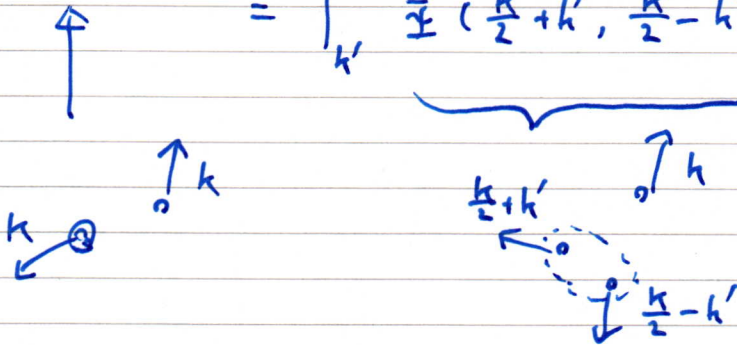 = ∫_{k'} Ψ ( K/2 + k' , K/2 - k
k
k
K
K/2 + k'
K/2 - k'